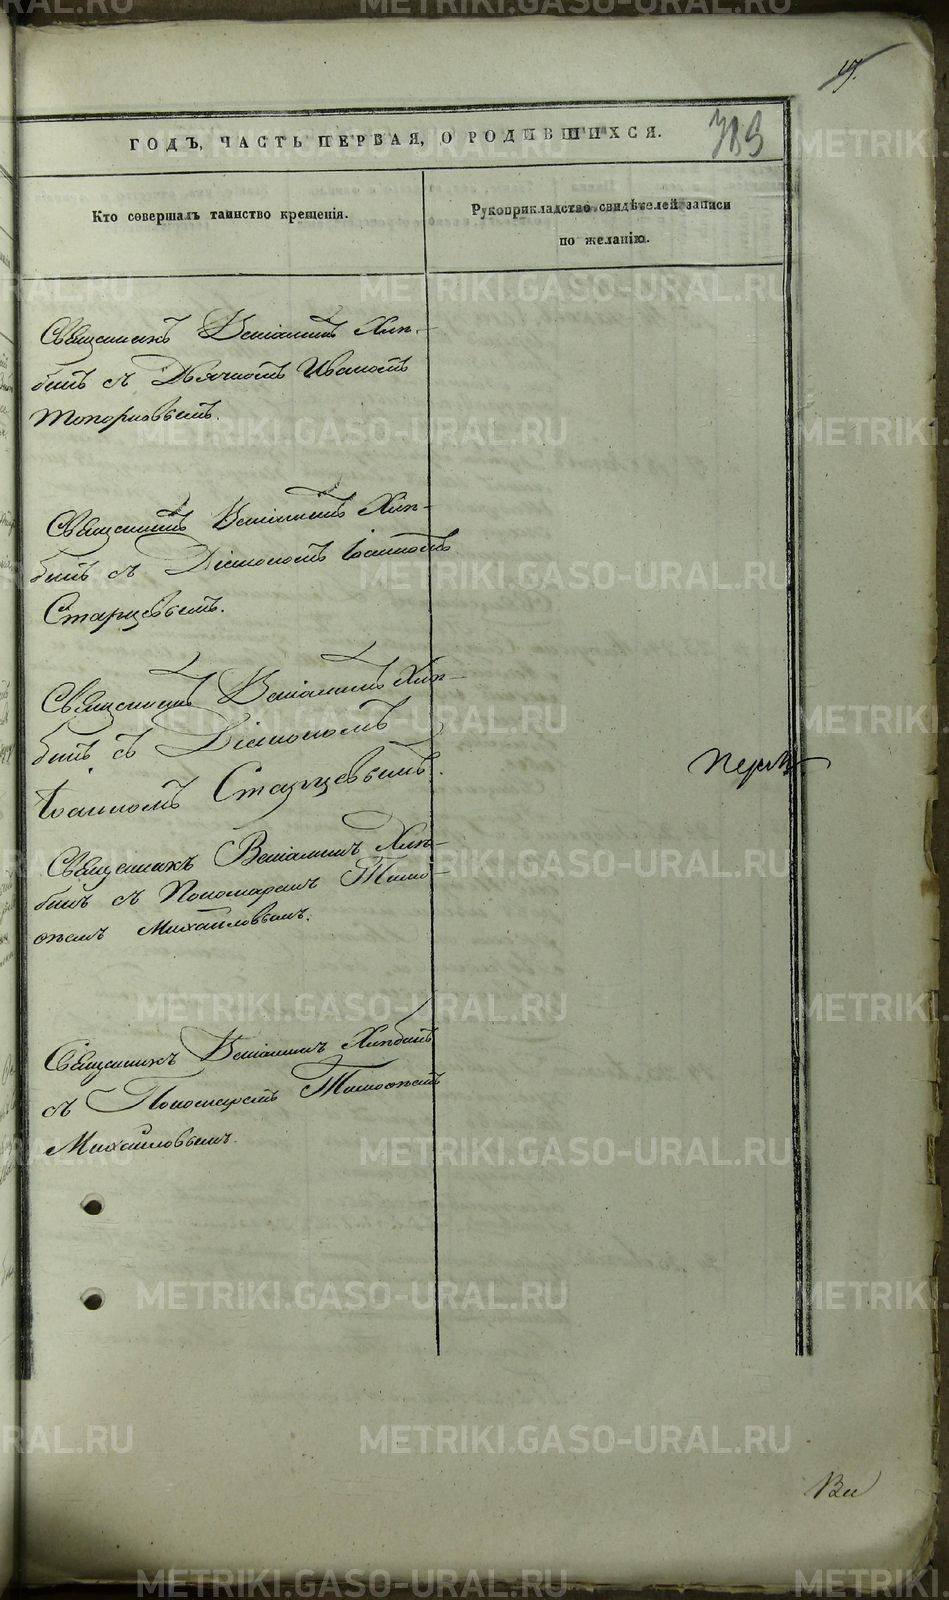 47.
389
ГОДЪ, ЧАСТЬ ПЕРВАЯ, О РОДИВШИХСЯ.
Кто совершалъ таинство крещенія.
Рукоприкладство свидѣтелей записи
по желанію.
Священникъ Веніаминъ Хлѣ-
бинъ съ Дьячкомъ Иваномъ
Топорковымъ.
Священникъ Веніаминъ Хлѣ-
бинъ съ Діакономъ Іоанномъ
Старцевымъ.
Священникъ Веніаминъ Хлѣ-
бинъ съ Діакономъ
Іоанномъ Старцевымъ.
Священникъ Веніаминъ Хлѣ-
бинъ съ Пономаремъ Тимо-
ѳеемъ Михайловымъ.
Священникъ Веніаминъ Хлѣбинъ
съ Пономаремъ Тимоѳеемъ
Михайловымъ.
METRIKI.GASO-URAL.RU